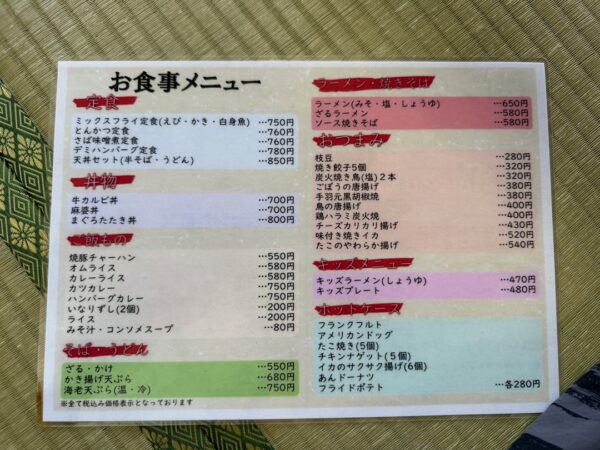 お食事メニュー
定食
ミックスフライ定食(えび・かき・白身魚) …750円
とんかつ定食 …760円
さば味噌煮定食 …760円
デミハンバーグ定食 …780円
天丼セット(半そば・うどん) …850円
丼物
牛カルビ丼 …700円
麻婆丼 …700円
まぐろたたき丼 …800円
ご飯もの
焼豚チャーハン …550円
オムライス …580円
カレーライス …580円
カツカレー …750円
ハンバーグカレー …750円
いなりずし(2個) …200円
ライス …200円
みそ汁・コンソメスープ …80円
そば・うどん
ざる・かけ …550円
かき揚げ天ぷら …680円
海老天ぷら(温・冷) …750円
※全て税込み価格表示となっております
ラーメン・焼きそば
ラーメン(みそ・塩・しょうゆ) …650円
ざるラーメン …580円
ソース焼きそば …580円
おつまみ
枝豆 …280円
焼き餃子5個 …320円
炭火焼き鳥(塩)2本 …320円
ごぼうの唐揚げ …380円
手羽元黒胡椒焼 …380円
鳥の唐揚げ …400円
鶏ハラミ炭火焼 …400円
チーズカリカリ揚げ …430円
味付き焼きイカ …520円
たこのやわらか揚げ …540円
キッズメニュー
キッズラーメン(しょうゆ) …470円
キッズプレート …480円
ホットケース
フランクフルト
アメリカンドッグ
たこ焼き(5個)
チキンナゲット(5個)
イカのサクサク揚げ(6個)
あんドーナツ
フライドポテト …各280円